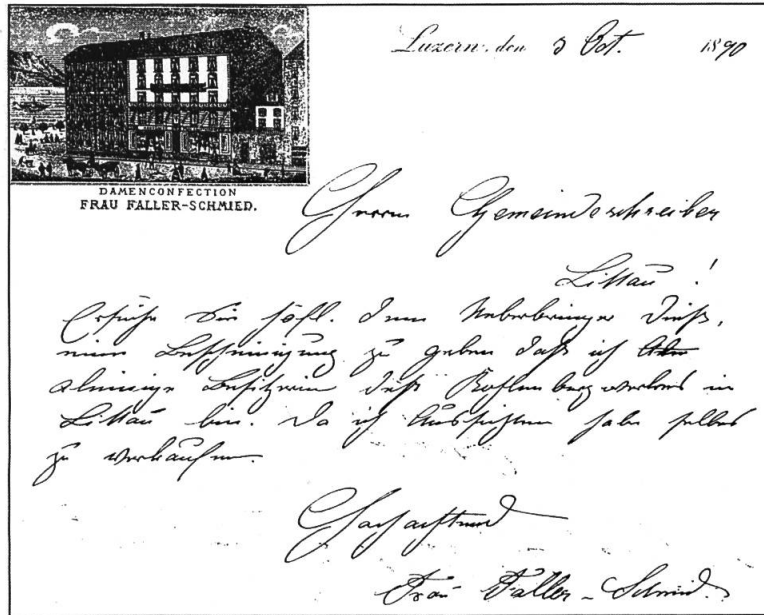 DAMENCONFECTION
FRAU FALLER-SCHMIED.
Luzern, den 3 Oct. 1890
Herrn Gemeindeschreiber
Littau!
Ersuche Sie höfl. dem Ueberbringer dieß,
eine Bescheinigung zu geben daß ich
alleinige Besitzerin deß Kohlenbergwerkes in
Littau bin. Da ich Aussichten habe selbes
zu verkaufen.
Hochachtend
Frau Faller-Schmied.